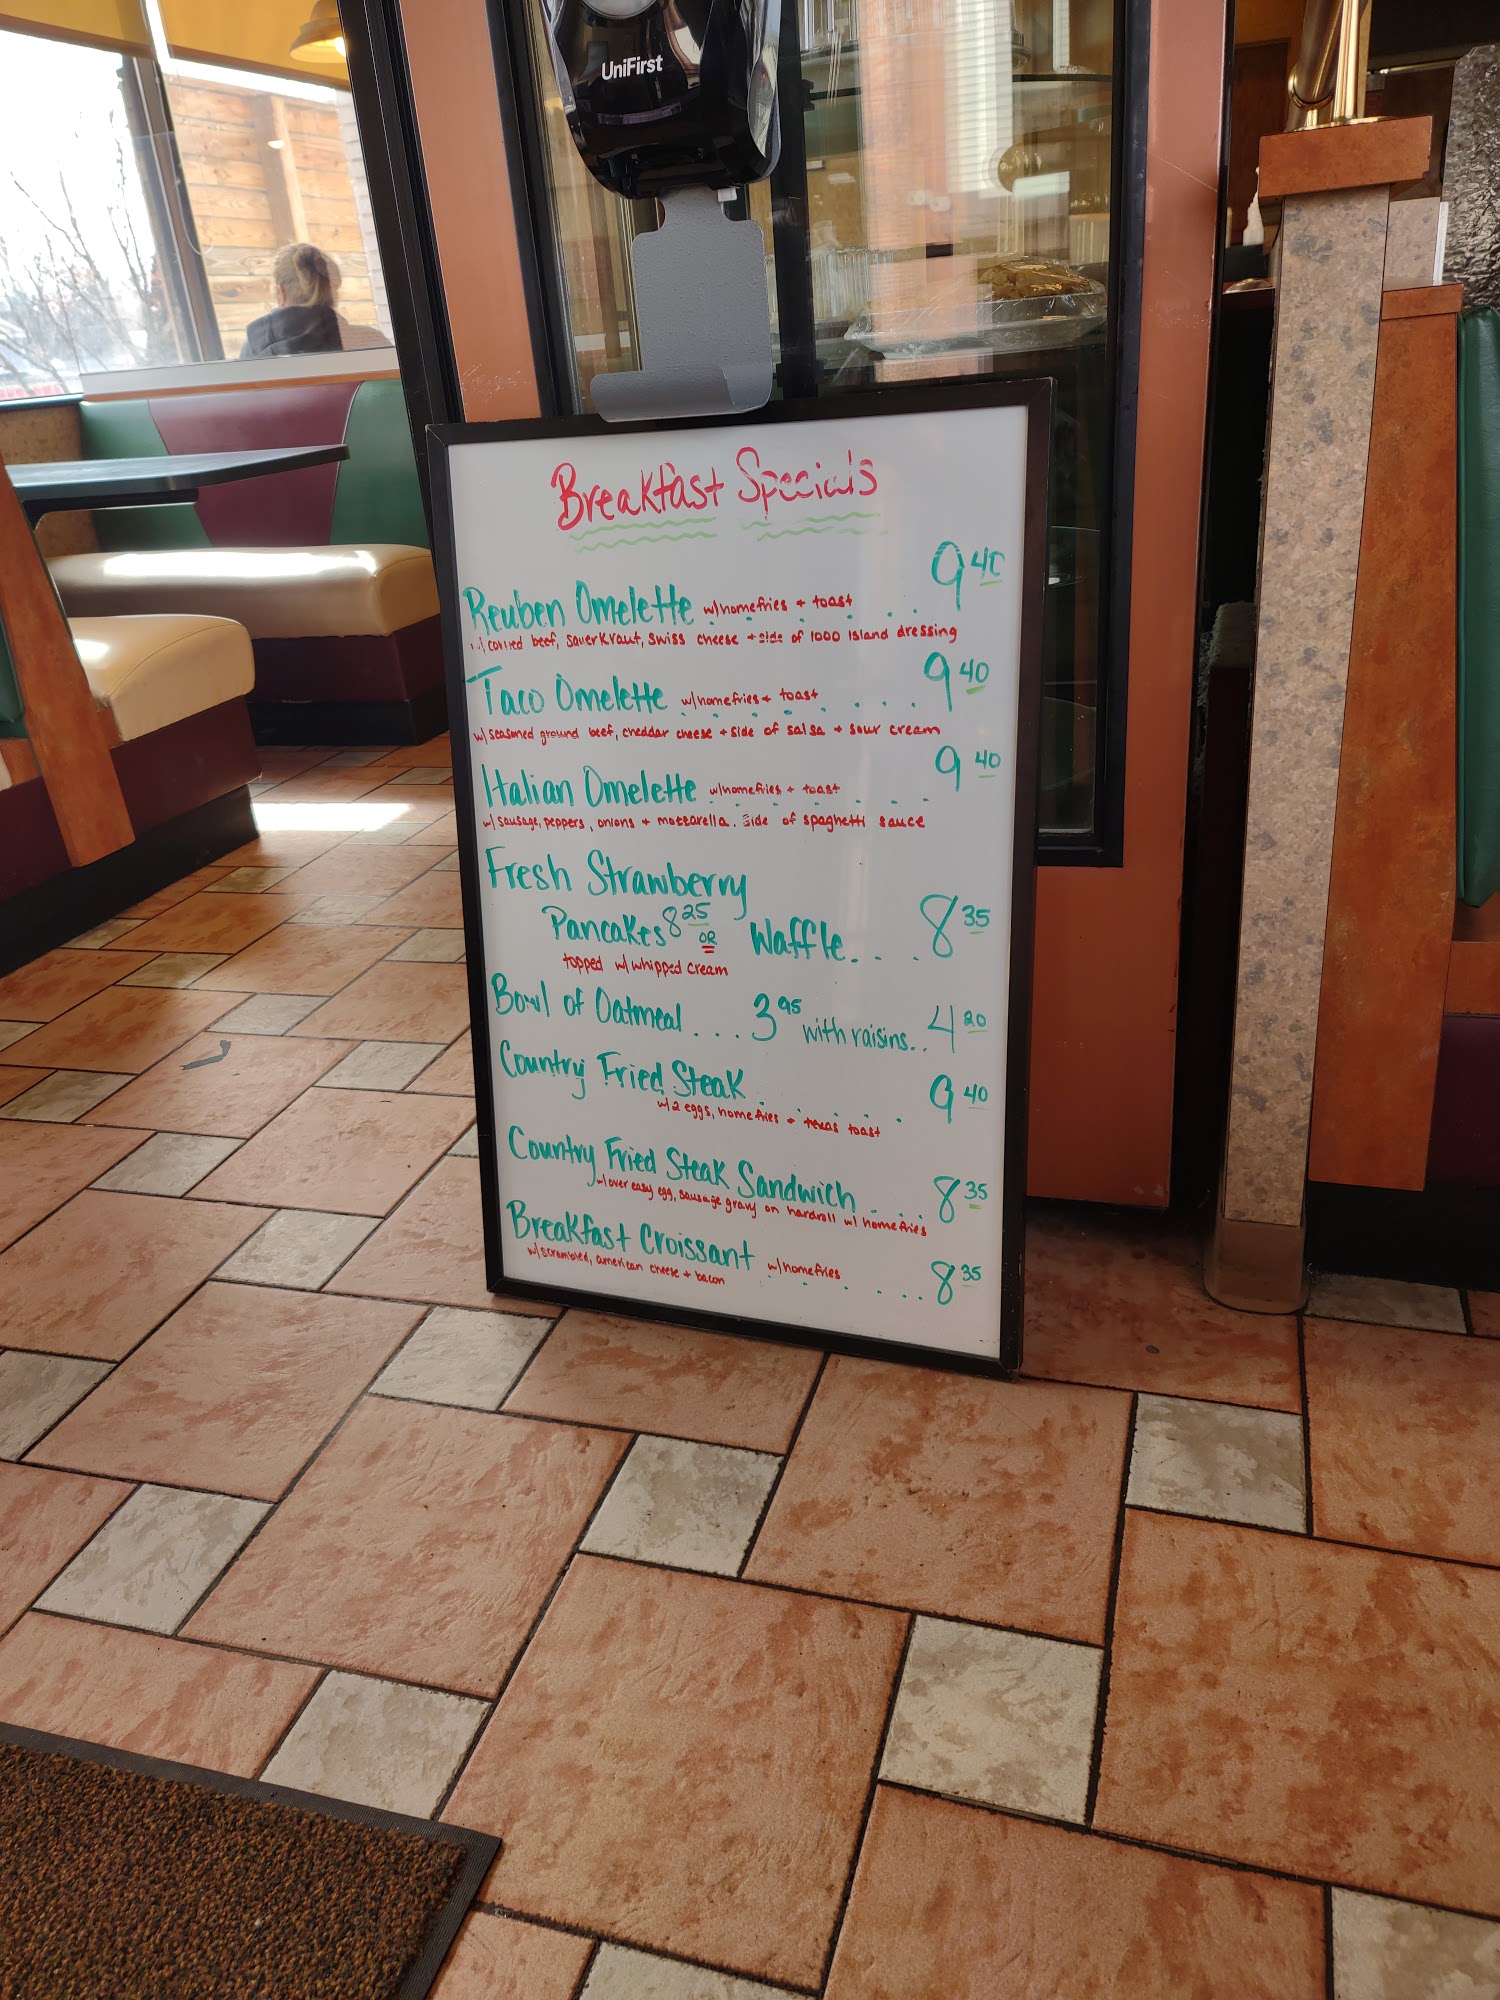 UniFirst
Breakfast Specials
Reuben Omelette w/homefries + toast . . 9 40
w/ corned beef, sauerkraut, swiss cheese + side of 1000 island dressing
Taco Omelette w/homefries + toast . . . . 9 40
w/ seasoned ground beef, cheddar cheese + side of salsa + sour cream
Italian Omelette w/homefries + toast . . . 9 40
w/ sausage, peppers, onions + mozzarella. Side of spaghetti sauce
Fresh Strawberry
Pancakes 8 25 OR Waffle. . . . 8 35
topped w/ whipped cream
Bowl of Oatmeal . . . 3 95 with raisins. . 4 20
Country Fried Steak . . . . . 9 40
w/ 2 eggs, homefries + texas toast
Country Fried Steak Sandwich . . . . 8 35
w/ over easy egg, sausage gravy on hardroll w/ homefries
Breakfast Croissant w/homefries . . . . 8 35
w/ scrambled, american cheese + bacon